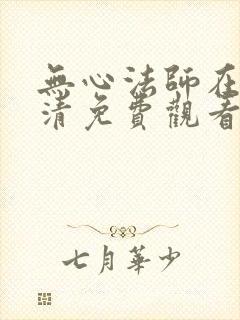 無心法師在
清免費觀看
七月華少